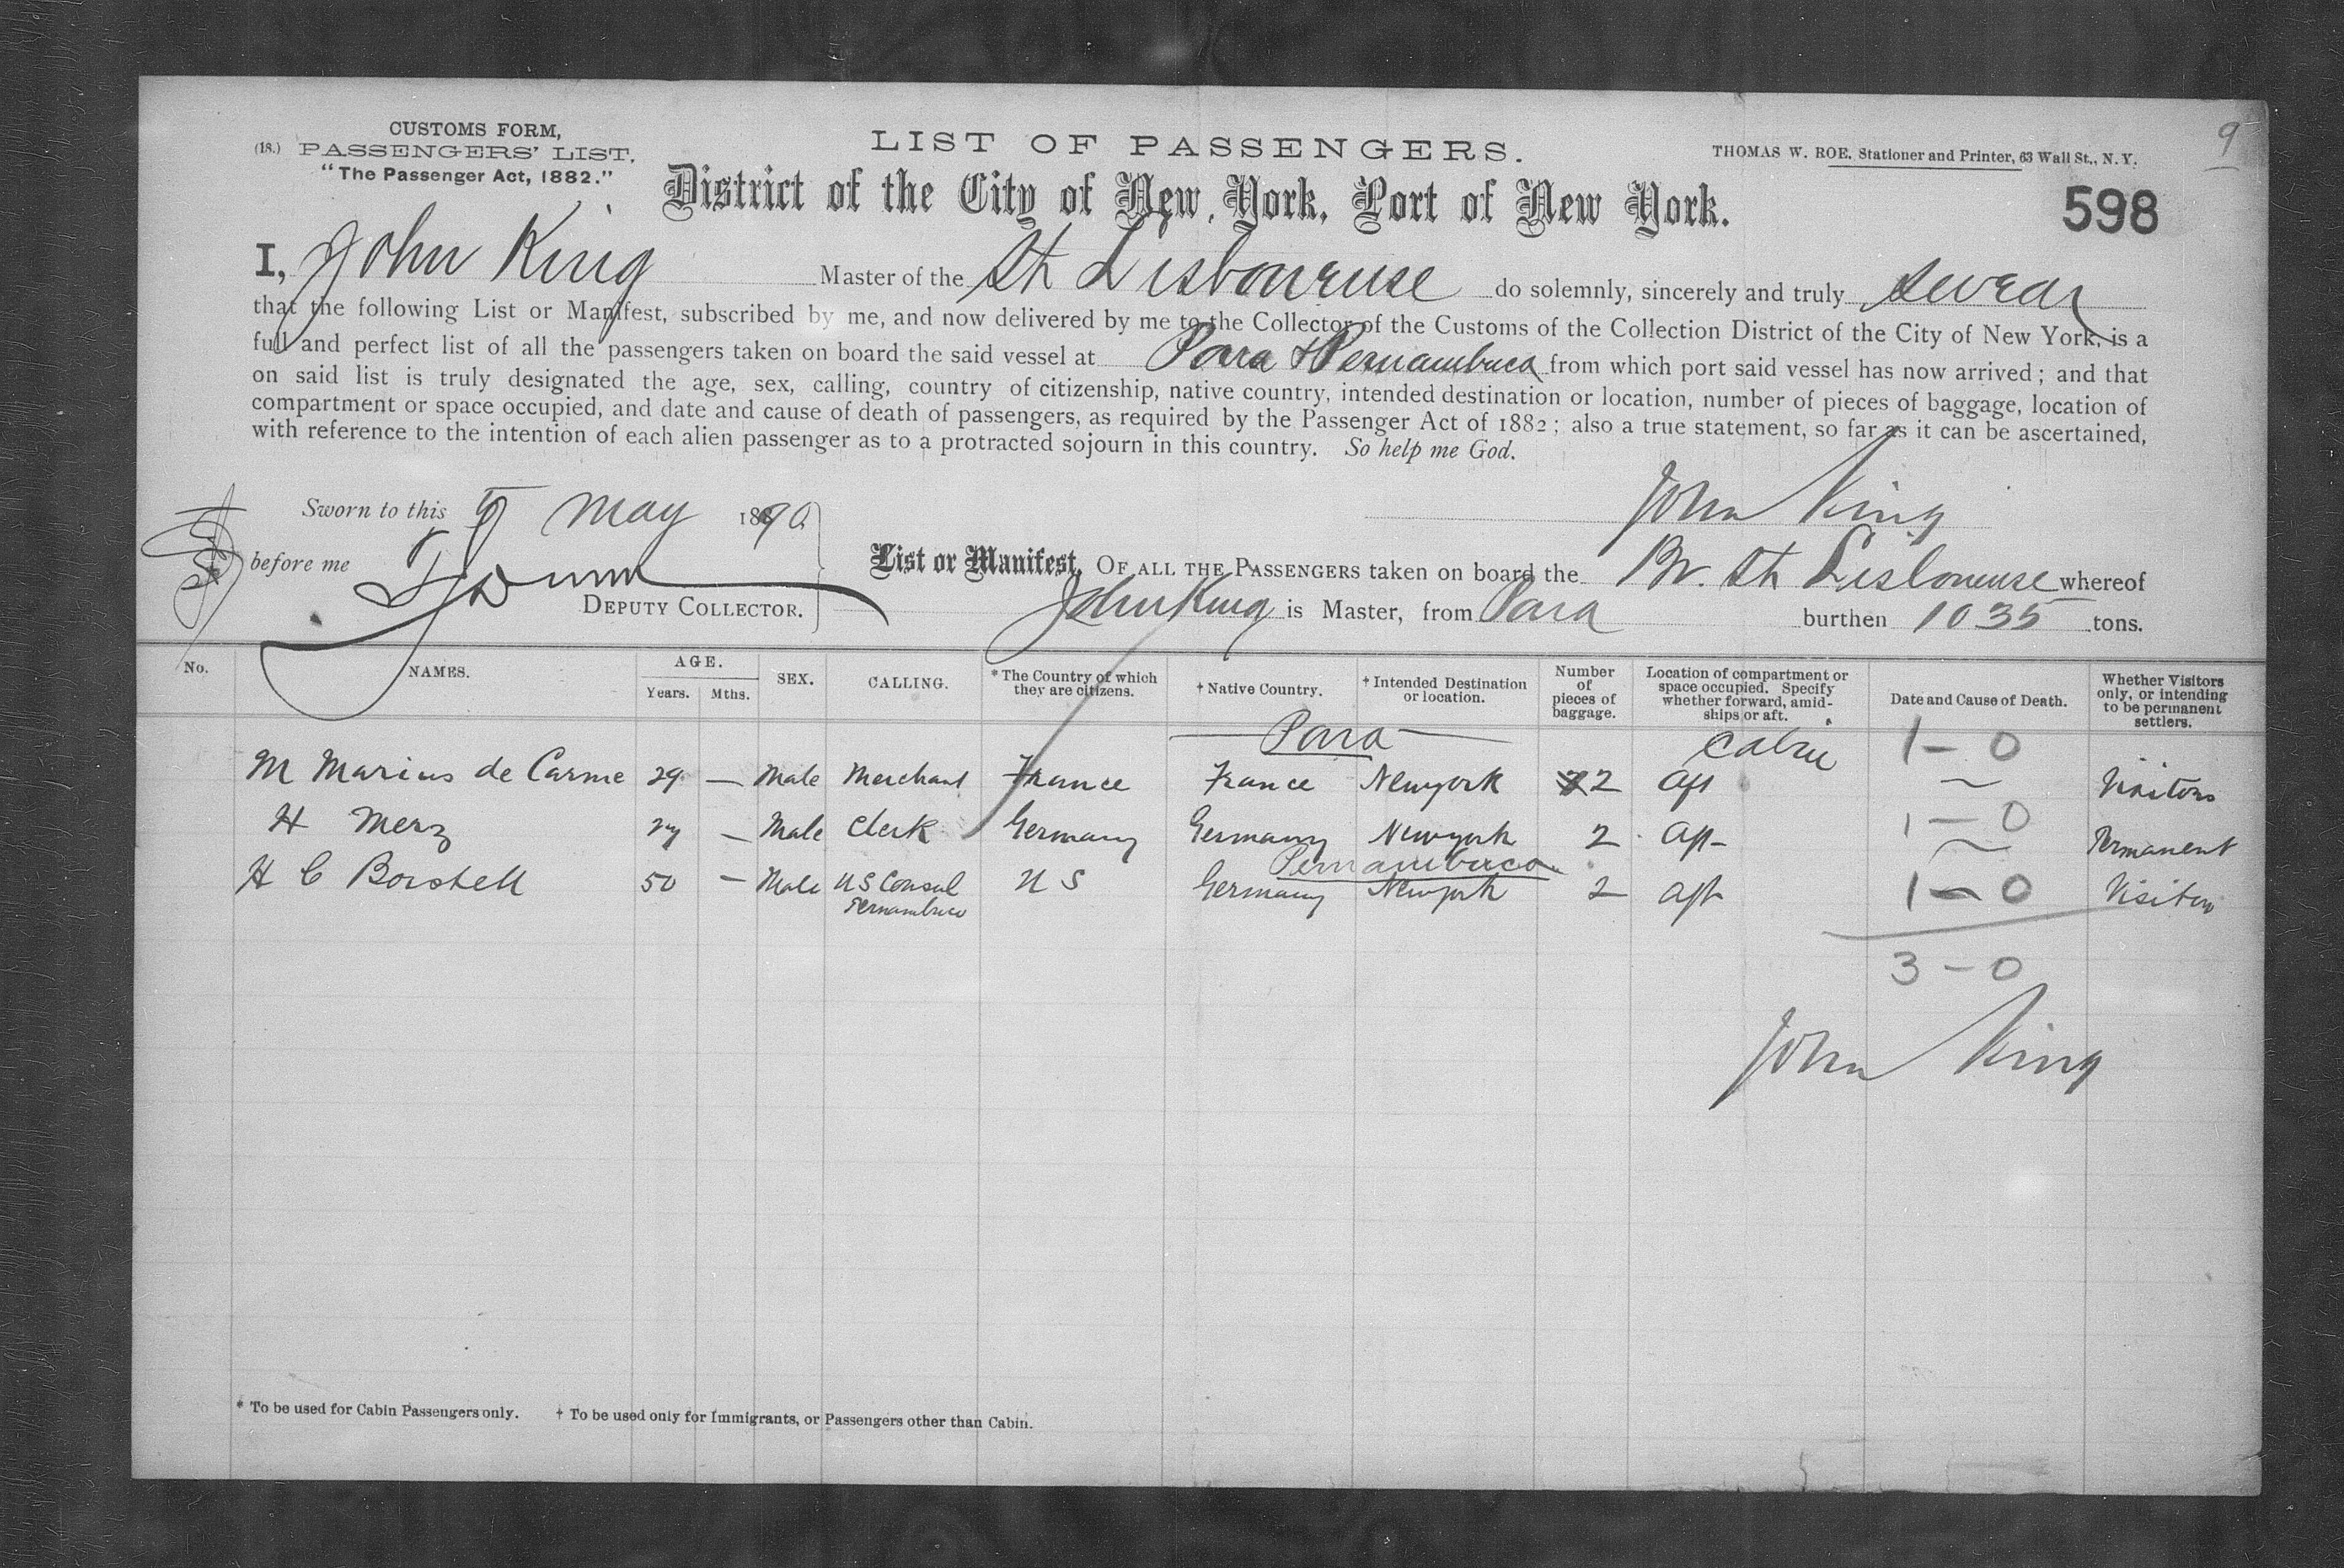 CUSTOMS FORM,
(18.) PASSENGERS' LIST.
"The Passenger Act, 1882."
LIST OF PASSENGERS.
THOMAS W. ROE, Stationer and Printer, 63 Wall St., N.Y.
9
District of the City of New York, Port of New York.
598
I, John King Master of the Str Lisbonense do solemnly, sincerely and truly swear
that the following List or Manifest, subscribed by me, and now delivered by me to the Collector of the Customs of the Collection District of the City of New York, is a
full and perfect list of all the passengers taken on board the said vessel at Para & Pernambuco from which port said vessel has now arrived; and that
on said list is truly designated the age, sex, calling, country of citizenship, native country, intended destination or location, number of pieces of baggage, location of
compartment or space occupied, and date and cause of death of passengers, as required by the Passenger Act of 1882; also a true statement, so far as it can be ascertained,
with reference to the intention of each alien passenger as to a protracted sojourn in this country. So help me God.
John King
Sworn to this 9 May 1890
before me
DEPUTY COLLECTOR.
List or Manifest, OF ALL THE PASSENGERS taken on board the Br. Str Lisbonense whereof
John King is Master, from Para burthen 1035 tons.
No. NAMES. AGE. Years. Mths. SEX. CALLING. * The Country of which they are citizens. † Native Country. † Intended Destination or location. Number of pieces of baggage. Location of compartment or space occupied. Specify whether forward, amidships or aft. Date and Cause of Death. Whether Visitors only, or intending to be permanent settlers.
Para Cabin 1 - 0
M Marius de Carme 29 — Male Merchant France France Newyork 2 Aft Visitors
1 - 0
H Merz 27 — Male Clerk Germany Germany Newyork 2 Aft Permanent
Pernambuco
H C Borstell 50 — Male US Consul Pernambuco U S Germany Newyork 2 Aft 1 - 0 Visitor
3 - 0
John King
* To be used for Cabin Passengers only. † To be used only for Immigrants, or Passengers other than Cabin.